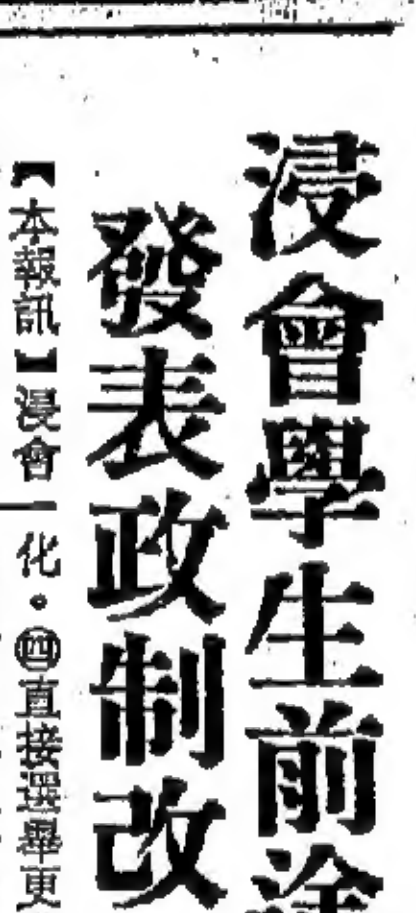 浸會學生前途
發表政制改
【本報訊】浸會
化。㊃直接選舉更